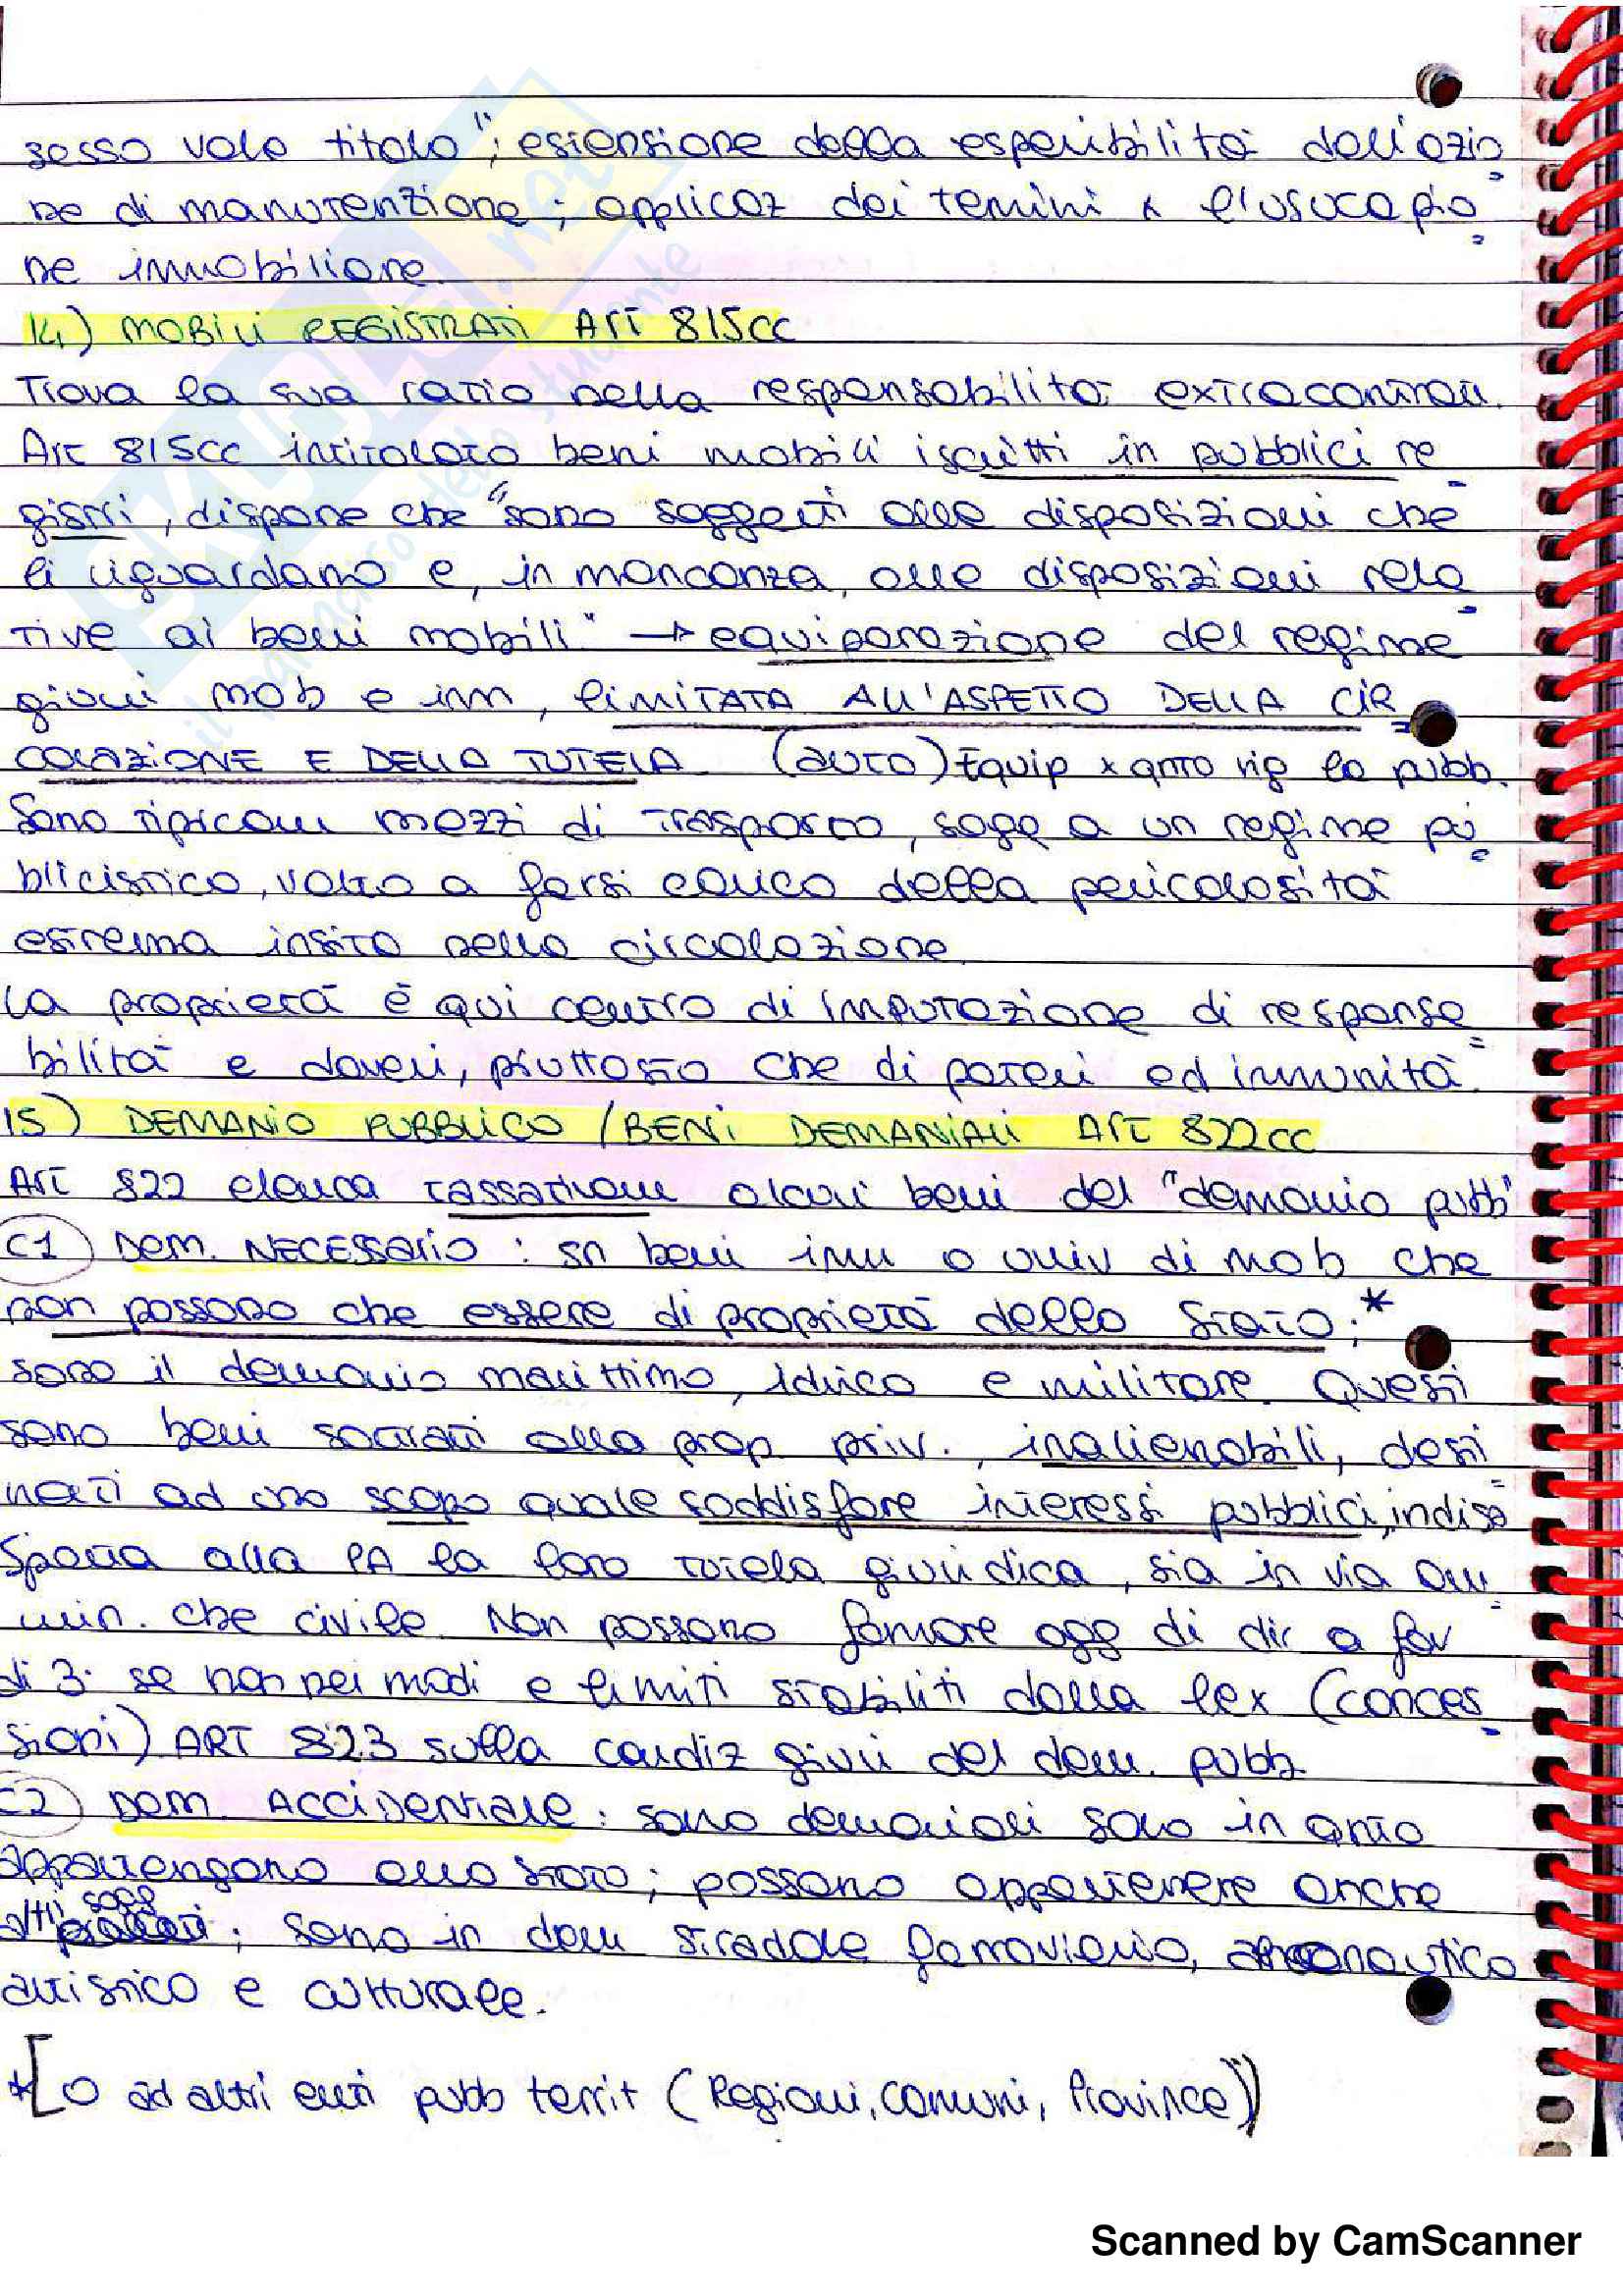 sesso vale titolo"; estensione della esperibilità dell'azio
ne di manutenzione; applicaz dei termini x l'usucapio
ne immobiliare.
14) MOBILI REGISTRATI ART 815CC
Trova la sua ratio nella responsabilità extracontratt.
Art 815cc intitolato beni mobili iscritti in pubblici re
gistri, dispone che "sono soggetti alle disposizioni che
li riguardano e, in mancanza, alle disposizioni rela
tive ai beni mobili" → equiparazione del regime
giuri mob e imm, LIMITATA ALL'ASPETTO DELLA CIR
COLAZIONE E DELLA TUTELA (auto) Equip x qnto rig la pubb.
Sono tipicam mezzi di trasporto, sogg a un regime pu
blicistico, volto a farsi carico della pericolosità
estrema insita nella circolazione.
La proprietà è qui centro di imputazione di responsa
bilità e doveri, piuttosto che di poteri ed immunità.
15) DEMANIO PUBBLICO / BENI DEMANIALI ART 822CC
Art 822 elenca tassativam alcuni beni del "demanio pubb"
C1) DEM. NECESSARIO: sn beni imm o univ di mob che
non possono che essere di proprietà dello Stato;*
sono il demanio marittimo, idrico e militare. Questi
sono beni sottratti alla prop. priv., inalienabili, desti
nati ad uno scopo quale soddisfare interessi pubblici, indisp
Spetta alla PA la loro tutela giuridica, sia in via am
min. che civile. Non possono formare ogg di dir a fav
di 3i se non nei modi e limiti stabiliti dalla lex (conces
sioni) ART 823 sulla condiz giuri del dem. pubb.
C2) DEM. ACCIDENTALE: sono demaniali solo in qnto
appartengono allo Stato; possono appartenere anche
altri sogg; sono in dem stradale ferroviario, aeronautico
artistico e culturale.
*[O ad altri enti pubb territ (Regioni, Comuni, Province)]
SKUOLA.net
il paradiso dello studente
Scanned by CamScanner